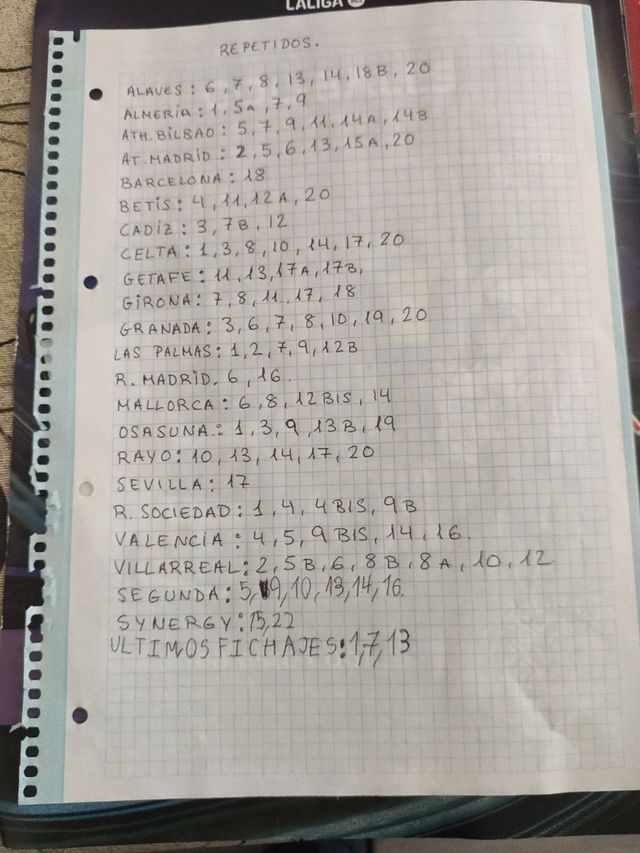 LALIGA
REPETIDOS.
ALAVES: 6, 7, 8, 13, 14, 18B, 20
ALMERIA: 1, 5A, 7, 9
ATH. BILBAO: 5, 7, 9, 11, 14A, 14B
AT. MADRID: 2, 5, 6, 13, 15A, 20
BARCELONA: 18
BETIS: 4, 11, 12A, 20
CADIZ: 3, 7B, 12
CELTA: 1, 3, 8, 10, 14, 17, 20
GETAFE: 11, 13, 17A, 17B,
GIRONA: 7, 8, 11, 17, 18
GRANADA: 3, 6, 7, 8, 10, 19, 20
LAS PALMAS: 1, 2, 7, 9, 12B
R. MADRID. 6, 16.
MALLORCA: 6, 8, 12 BIS, 14
OSASUNA: 1, 3, 9, 13B, 19
RAYO: 10, 13, 14, 17, 20
SEVILLA: 17
R. SOCIEDAD: 1, 4, 4BIS, 9B
VALENCIA: 4, 5, 9 BIS, 14, 16.
VILLARREAL: 2, 5B, 6, 8B, 8A, 10, 12
SEGUNDA: 5, 9, 10, 13, 14, 16.
SYNERGY: 15, 22
ULTIMOS FICHAJES: 1, 7, 13